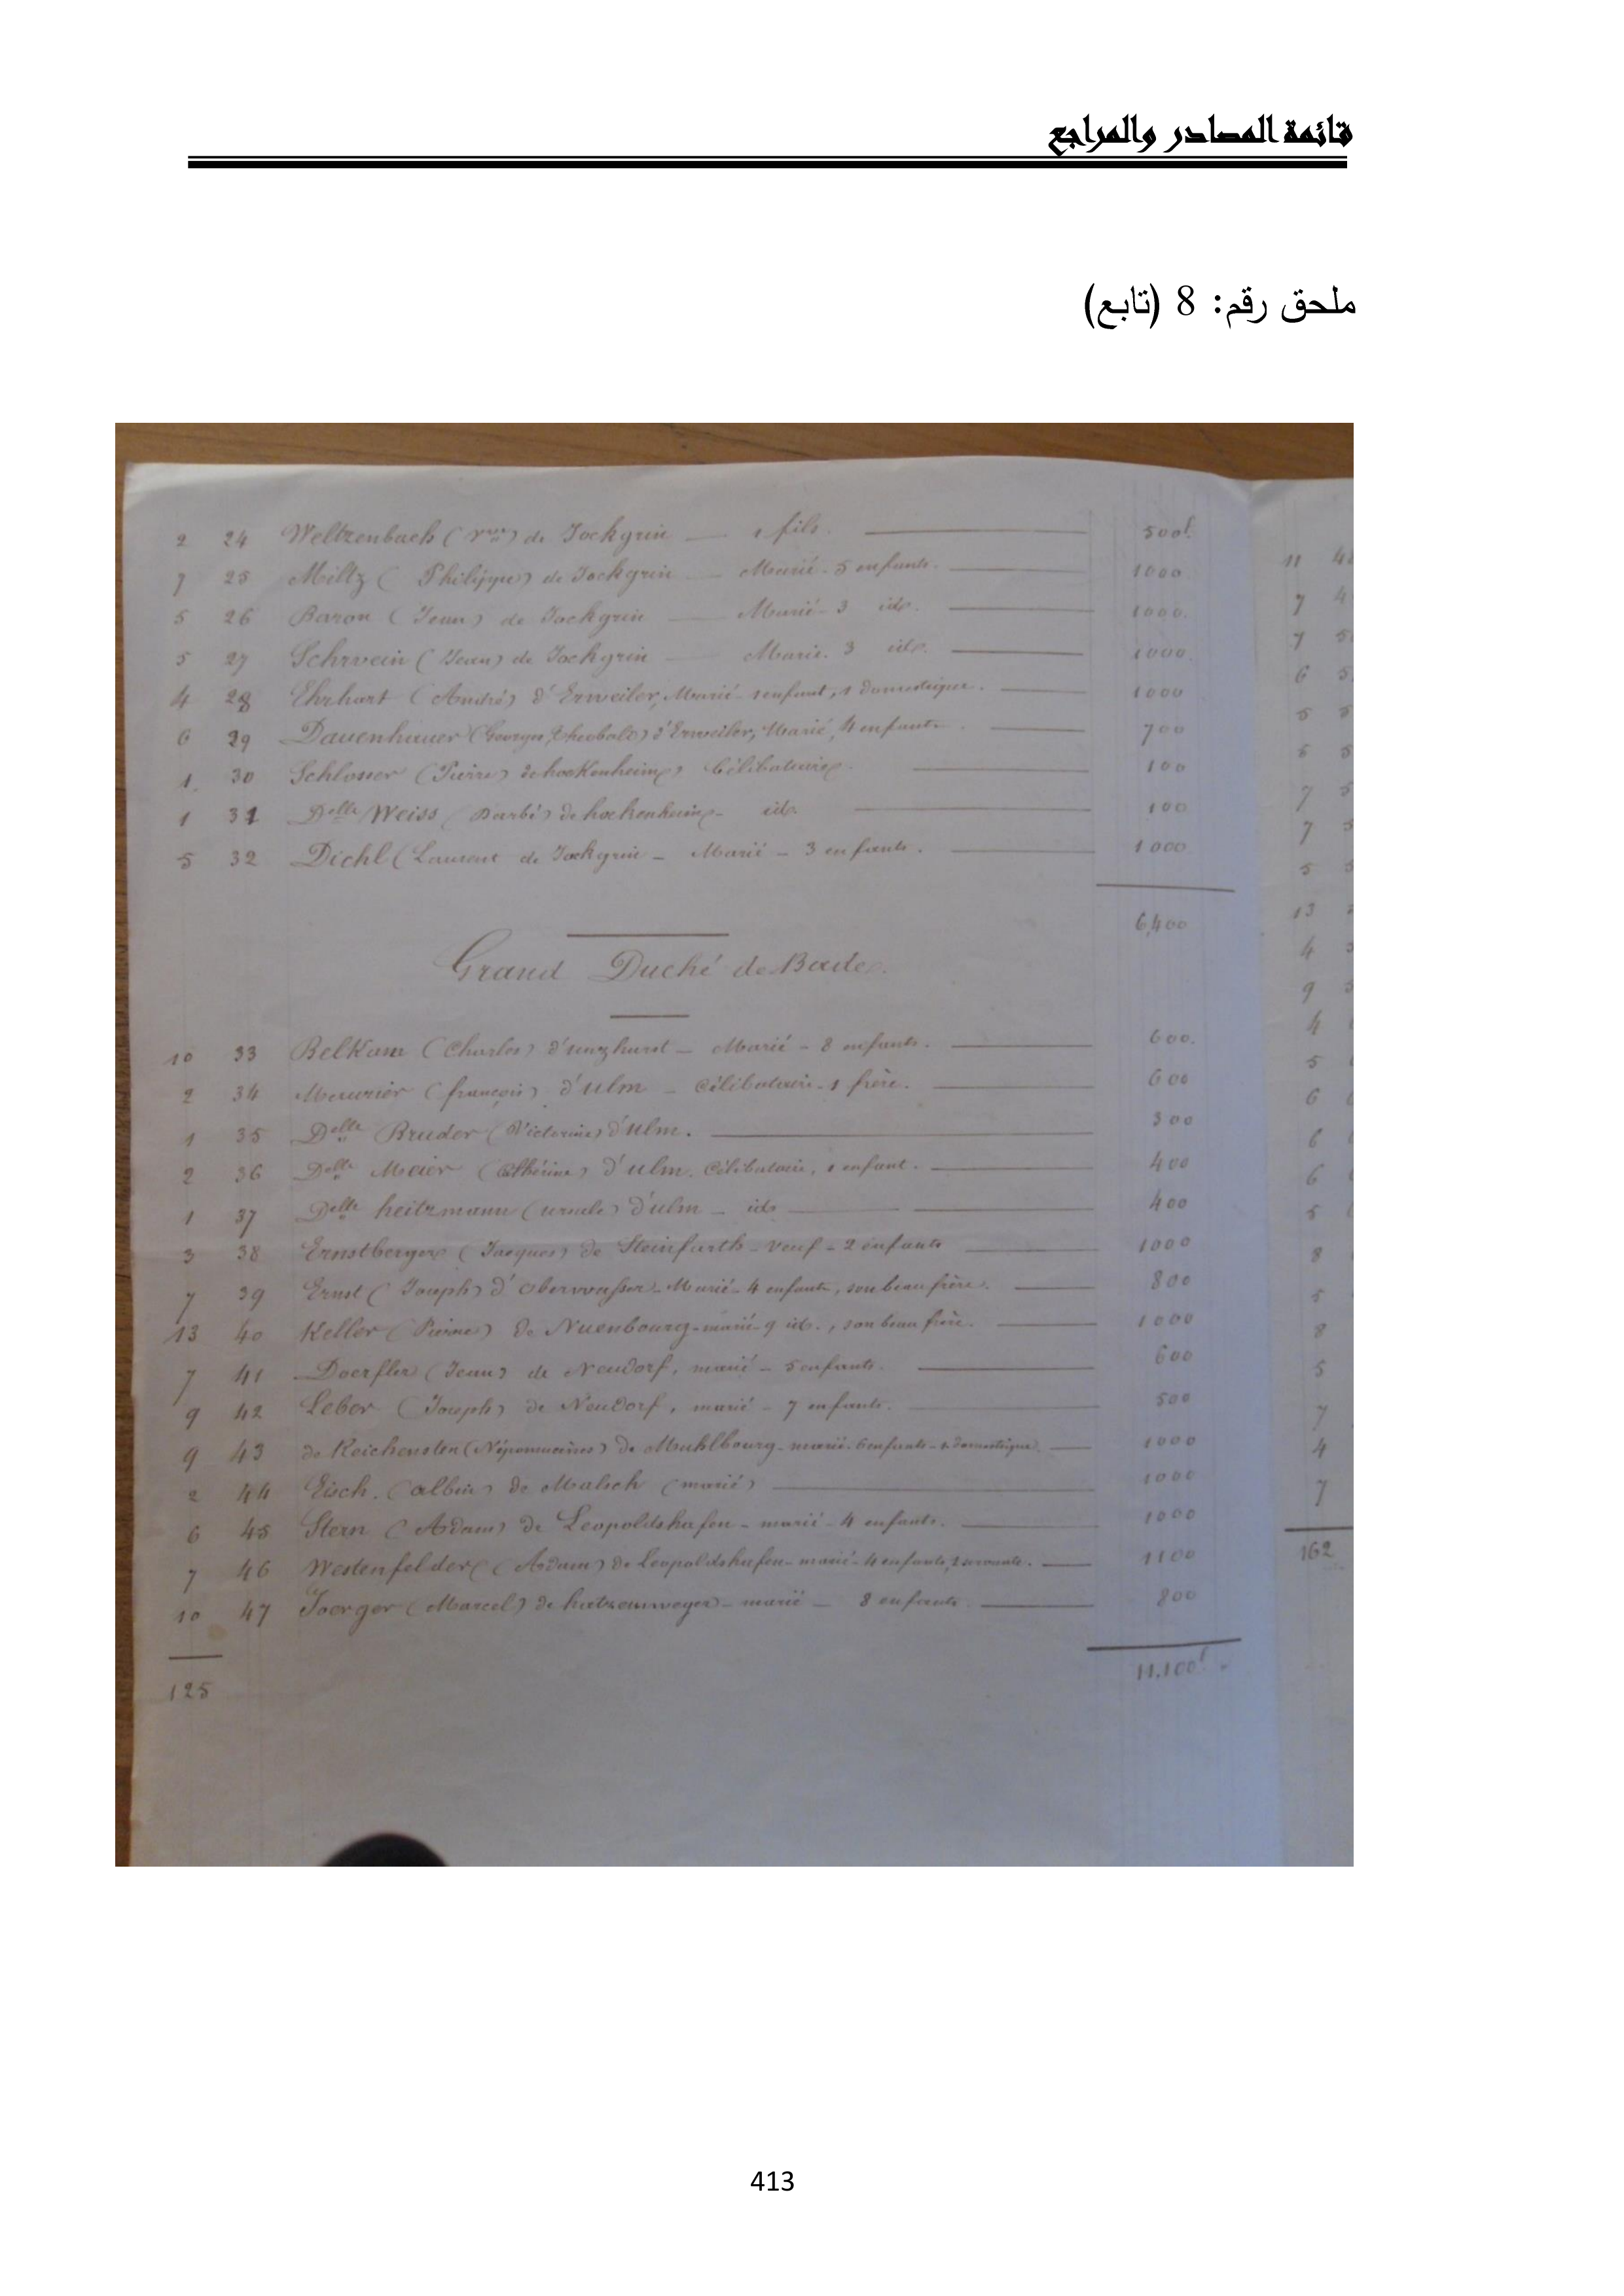 قائمة المصادر والمراجع
ملحق رقم: 8 (تابع)
2 24 Weltzenbach (Vve) de Jockgrin — 1 fils. — 500f.
7 25 Miltz (Philippe) de Jockgrin — Marié - 5 enfants. — 1000
5 26 Baron (Jean) de Jockgrin — Marié - 3 id. — 1000.
5 27 Schrvein (Jean) de Jockgrin — Marié. 3 id. — 1000.
4 28 Ehrhart (André) d'Erweiler, Marié - 1 enfant, 1 domestique. — 1000
6 29 Dauenhauer (Georges, Théobald) d'Erweiler, Marié, 4 enfants. — 700
1. 30 Schlosser (Pierre) de hockenheim, Célibataire. — 100
1 31 Delle Weiss (Barbe) de hockenheim - id. — 100
5 32 Dichl (Laurent de Jockgrin - Marié - 3 enfants. — 1000
6,400
Grand Duché de Bade.
10 33 BelKam (Charles) d'unzhurst - Marié - 8 enfants. — 600.
2 34 Meurier (françois) d'ulm - Célibataire. 1 frère. — 600
1 35 Delle Bruder (Victorine) d'ulm. — 300
2 36 Delle Meier (Cathérine) d'ulm. Célibataire, 1 enfant. — 400
1 37 Delle heitzmann (ursule) d'ulm - id — 400
3 38 Ernstberger (Jacques) de Steinfurth - Veuf - 2 enfants — 1000
7 39 Ernst (Joseph) d'oberwasser - Marié - 4 enfants, son beau frère. — 800
13 40 Keller (Pierre) de Nuenbourg - marié - 9 id., son beau frère. — 1000
7 41 Doerfler (Jean) de Neudorf, marié - 5 enfants. — 600
9 42 Leber (Joseph) de Neudorf, marié - 7 enfants. — 500
9 43 de Reichensten (Népomucènes) de Muhlbourg - marié. 6 enfants - 1 domestique. — 1000
2 44 Eisch. (albin) de Malsch (marié) — 1000
6 45 Stern (Adam) de Leopoldshafen - marié - 4 enfants. — 1000
7 46 Westenfelder (Adam) de Leopoldshafen - marié - 4 enfants, 1 servante. — 1100
10 47 Joerger (Marcel) de hatzenweyer - marié - 8 enfants — 800
125 11.100f.
11 4
7 4
7 5
6 5
5 5
5 5
7 5
7 5
5 5
13
4
9
4
5
6
6
6
5
8
5
8
5
7
4
7
162
413